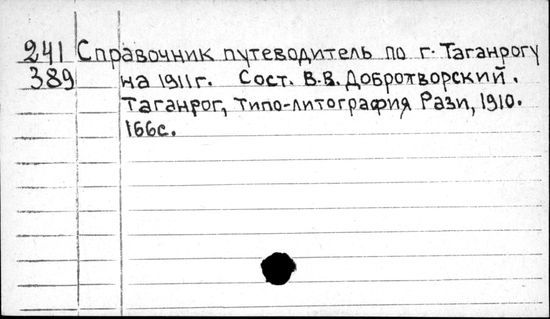 241 Справочник путеводитель по г. Таганрогу
389 на 1911г. Сост. В.В. Добротворский.
Таганрог, типо-литография Рази, 1910.
166с.